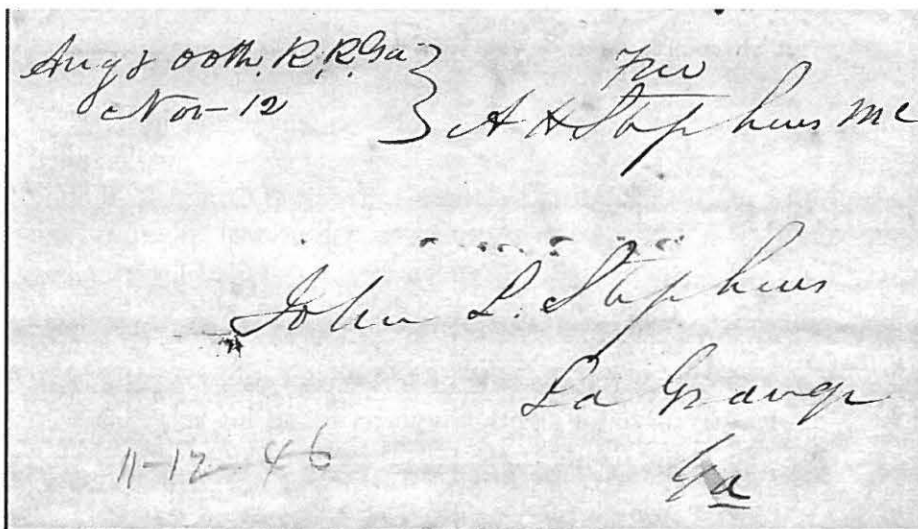 Aug & 00th. R. R. Ga
Nov-12
Free
A H Stephens MC
John L. Stephens
La Grange
Ga
11-12-46